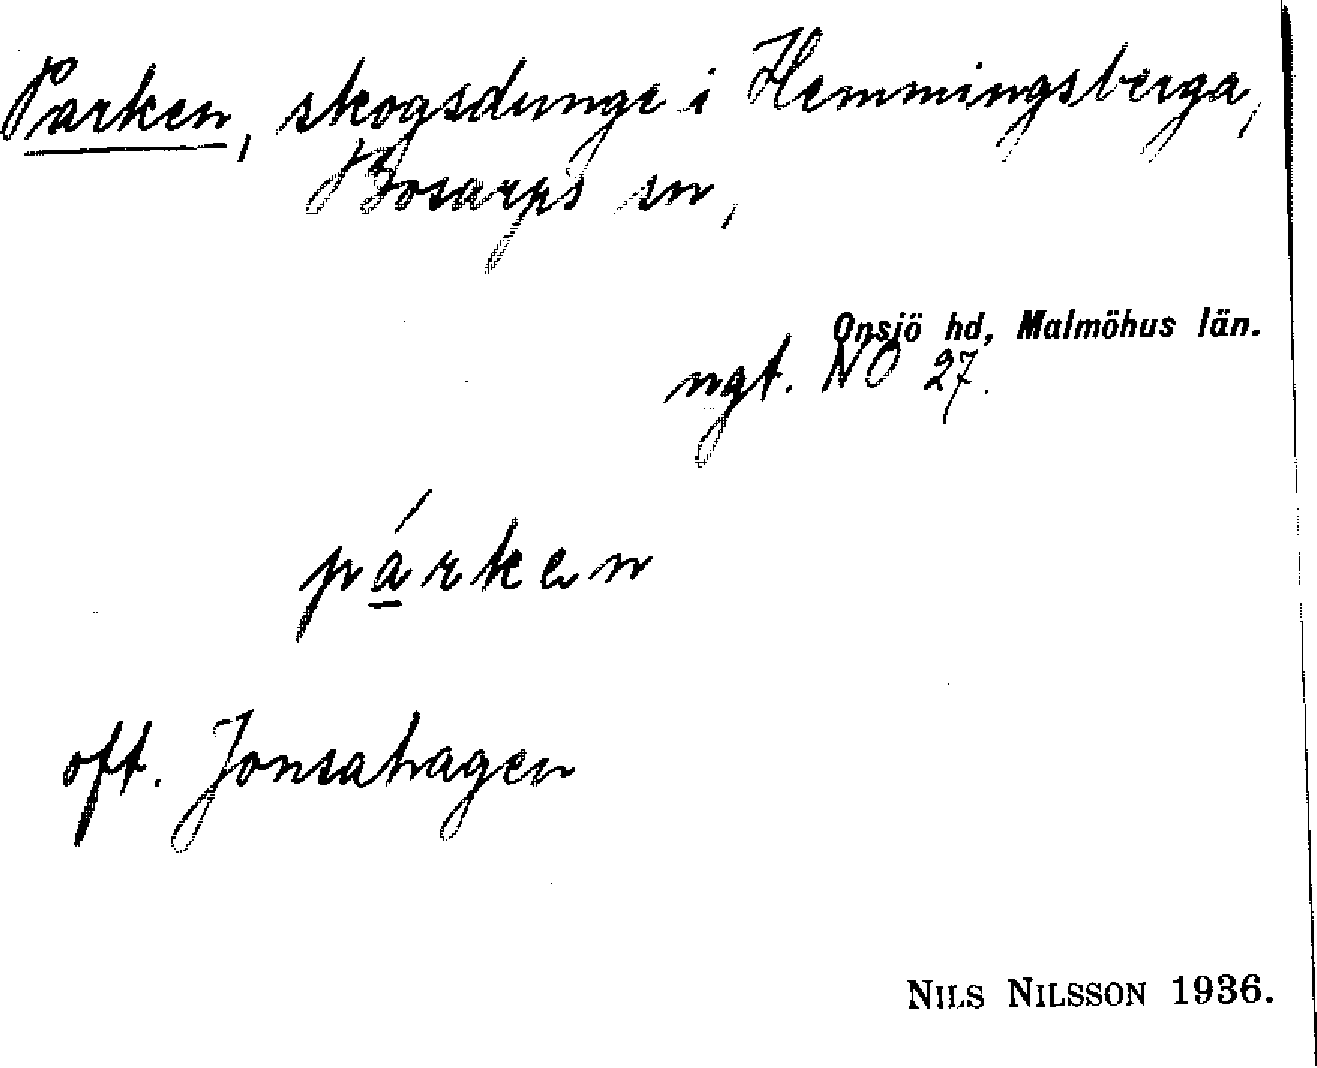 Parken, skogsdunge i Hemmingsberga,
Bosarps sn,
Onsjö hd, Malmöhus län.
ngt. NO 27.
párken
oft. Jonsahagen
NILS NILSSON 1936.